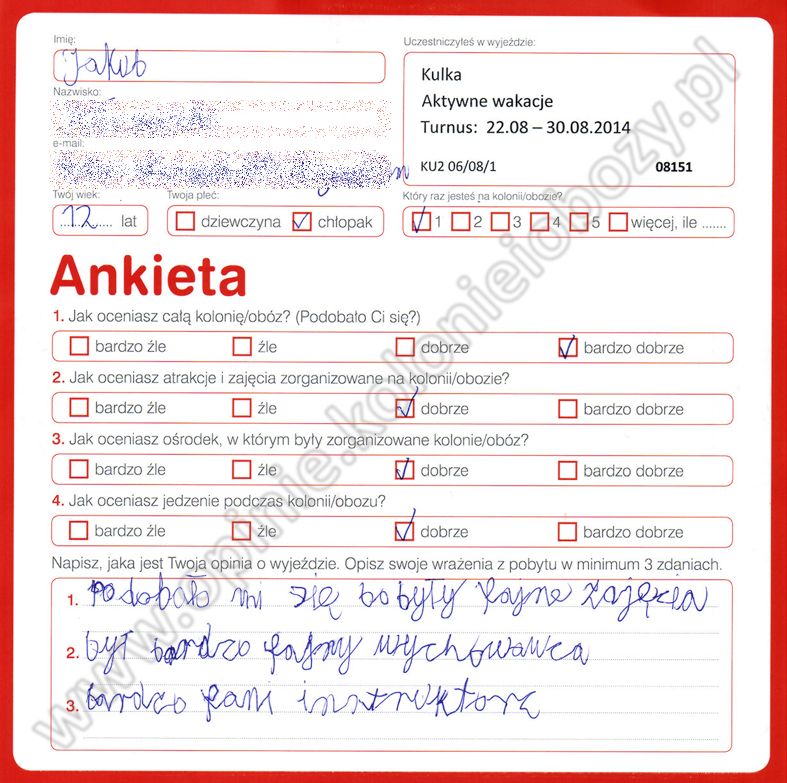 Imię:
Jakub
Uczestniczyłeś w wyjeździe:
Kulka
Aktywne wakacje
Turnus: 22.08 – 30.08.2014
KU2 06/08/1 08151
Nazwisko:
e-mail:
Twój wiek:
12 lat
Twoja płeć:
dziewczyna chłopak
Który raz jesteś na kolonii/obozie?
1 2 3 4 5 więcej, ile .......
Ankieta
1. Jak oceniasz całą kolonię/obóz? (Podobało Ci się?)
bardzo źle źle dobrze bardzo dobrze
2. Jak oceniasz atrakcje i zajęcia zorganizowane na kolonii/obozie?
bardzo źle źle dobrze bardzo dobrze
3. Jak oceniasz ośrodek, w którym były zorganizowane kolonie/obóz?
bardzo źle źle dobrze bardzo dobrze
4. Jak oceniasz jedzenie podczas kolonii/obozu?
bardzo źle źle dobrze bardzo dobrze
Napisz, jaka jest Twoja opinia o wyjeździe. Opisz swoje wrażenia z pobytu w minimum 3 zdaniach.
1. Podobało mi się bo były fajne zajęcia
2. był bardzo fajny wychowawca
3. bardzo fani instruktorzy
www.opinie.kolonieiobozy.pl